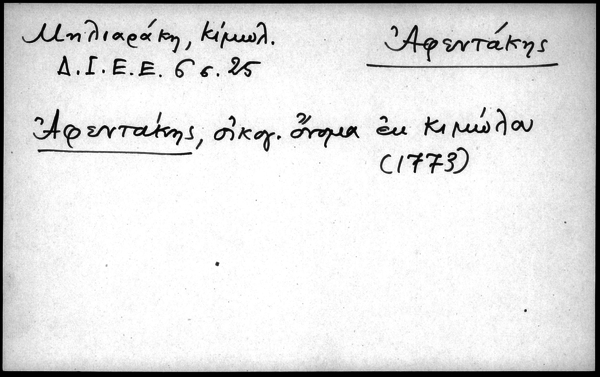 Μηλιαράκη, Κίμωλ.
Δ.Ι.Ε.Ε. 6 σ. 25
Ἀφεντάκης
Ἀφεντάκης, οἰκογ. ὄνομα ἐκ Κιμώλου
(1773)